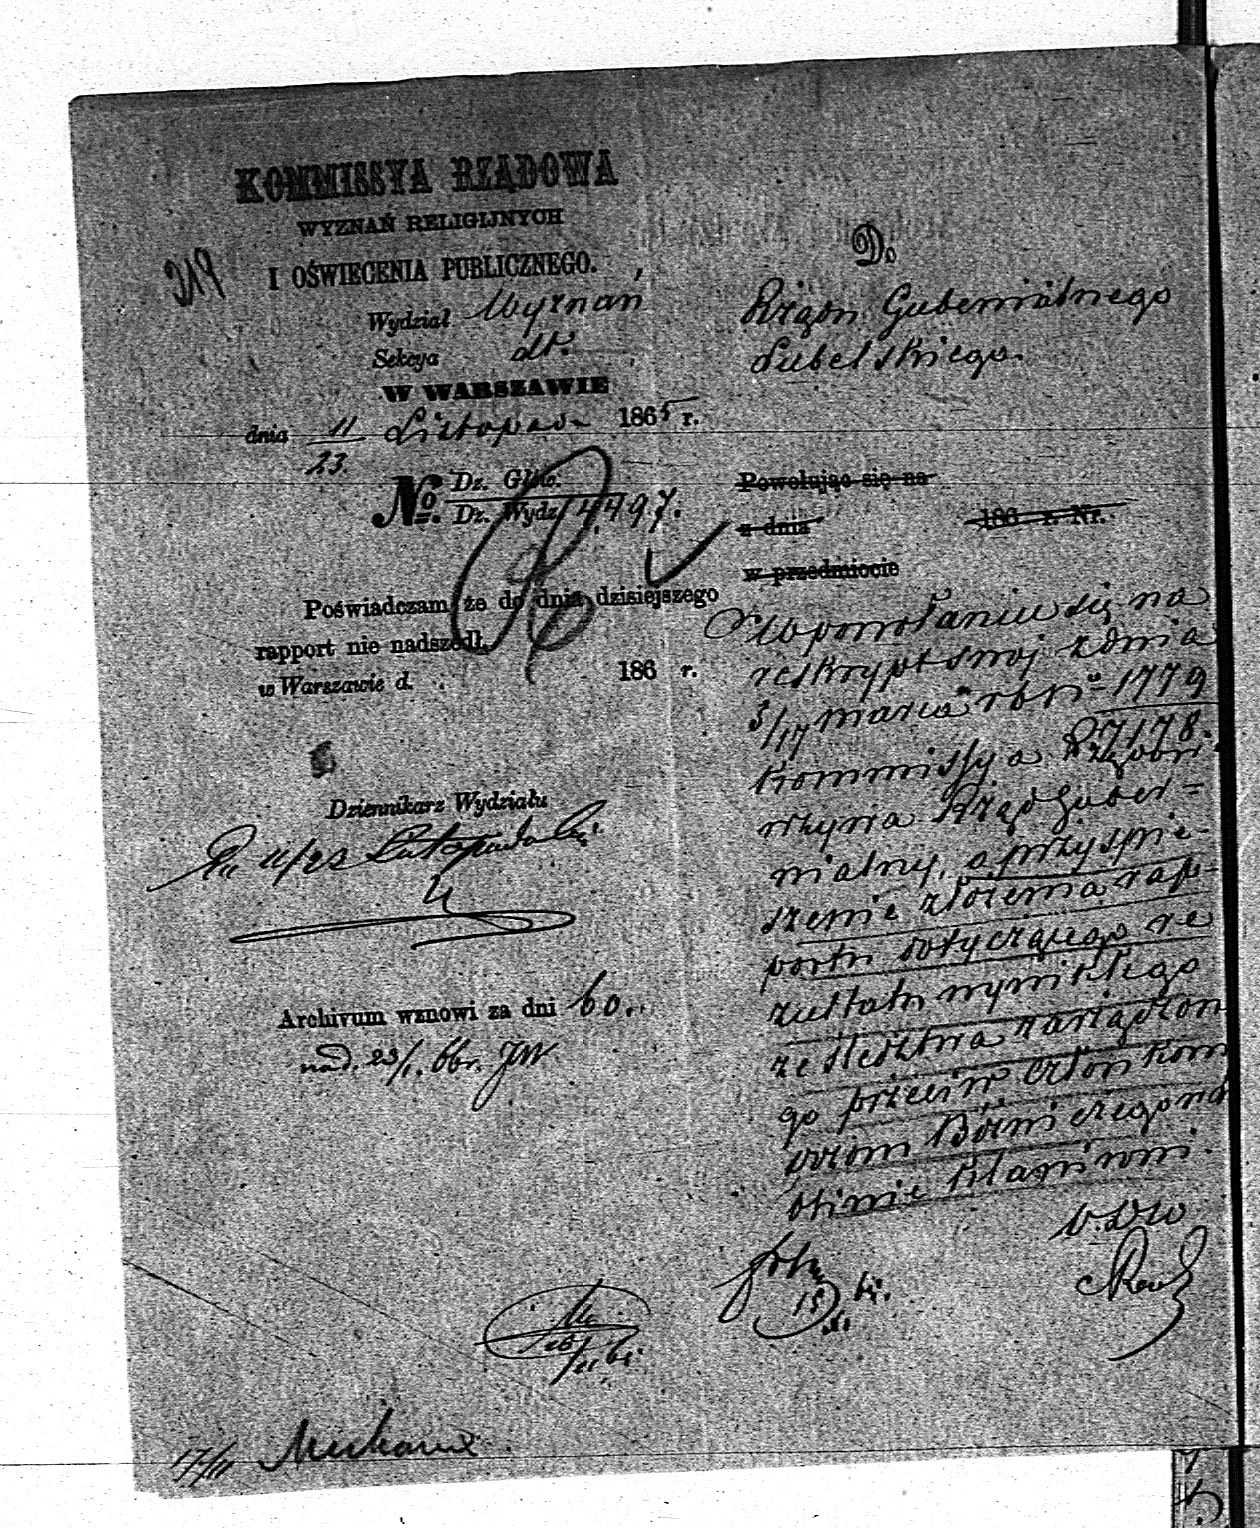 KOMMISSYA RZĄDOWA
WYZNAŃ RELIGIJNYCH
I OŚWIECENIA PUBLICZNEGO.
219
Wydział Wyznań
Sekcya
W WARSZAWIE
dnia 11/23 Listopada 1865 r.
No. Dz. Głów.
Dz. Wydz. 4497.
Poświadczam że do dnia dzisiejszego
rapport nie nadszedł.
w Warszawie d. 186 r.
Dziennikarz Wydziału
11/23 Listopada
Archivum wznowi za dni 60.
nad. 23/1. 66 r.
Do
Rządu Gubernialnego
Lubelskiego.
Powołując się na
z dnia 186 r. Nr.
w przedmiocie
W powołaniu się na
reskrypt swój z dnia
5/17 Marca rb N 1779
7178.
Kommissya Rządowa
wzywa Rząd Guber-
nialny, o przyspie-
szenie złożenia rap-
portu dotyczącego re
zultatu wynikłego
ze śledztwa zarządzon
go przeciw członkom
dozoru Bóżniczego w
gminie
V. D W
17/11